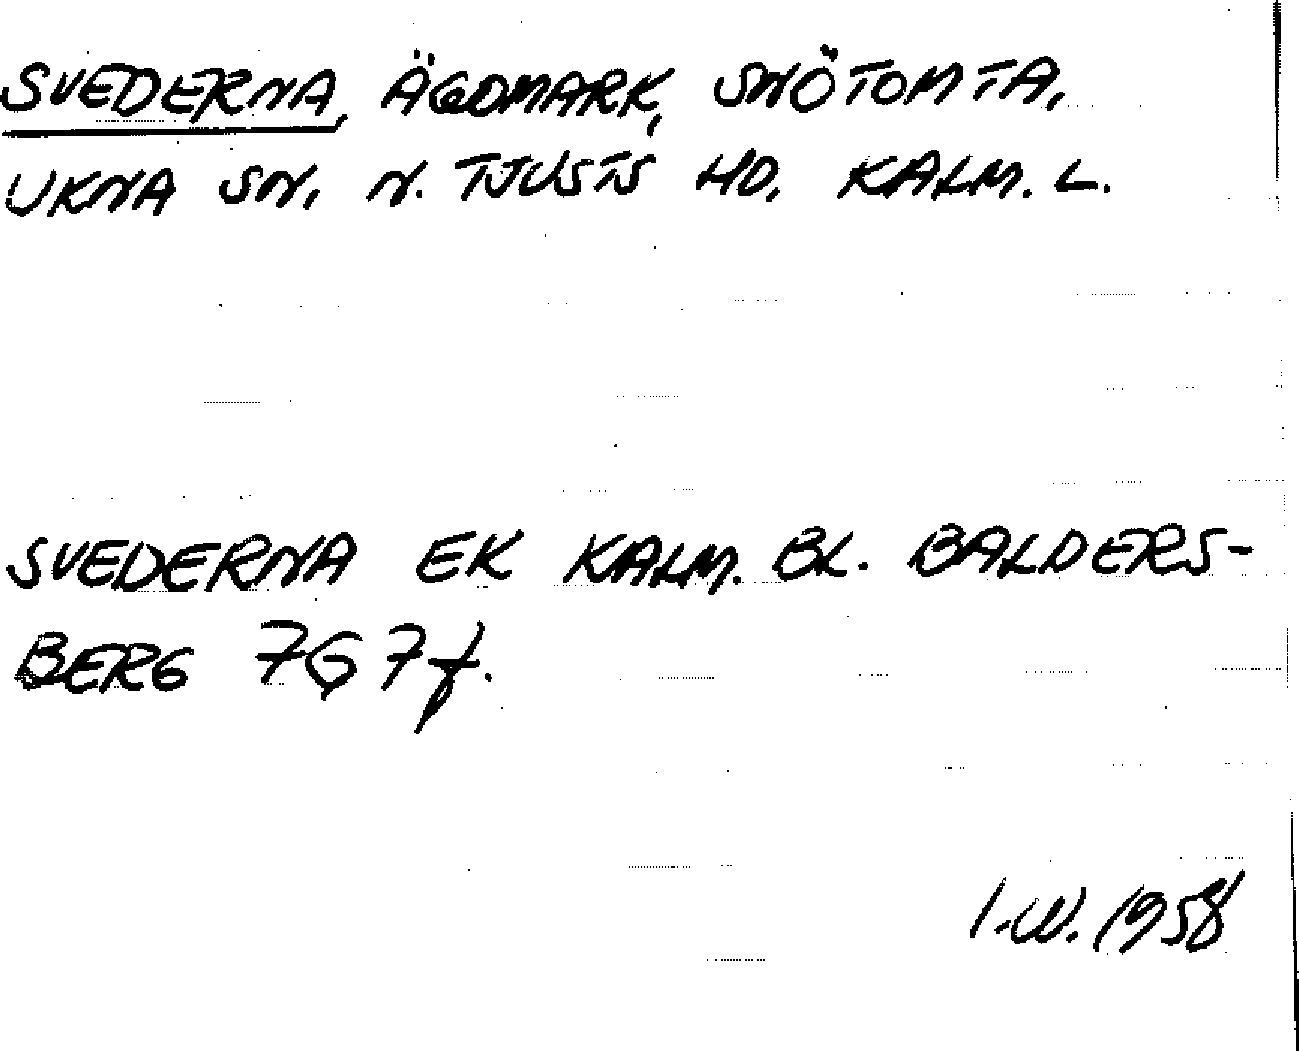 SVEDERNA, ÄGOMARK, SNÖTOMTA,
UKNA SN, N. TJUSTS HD, KALM. L.
SVEDERNA EK KALM. BL. BALDERS-
BERG 7G 7f.
I.W. 1958